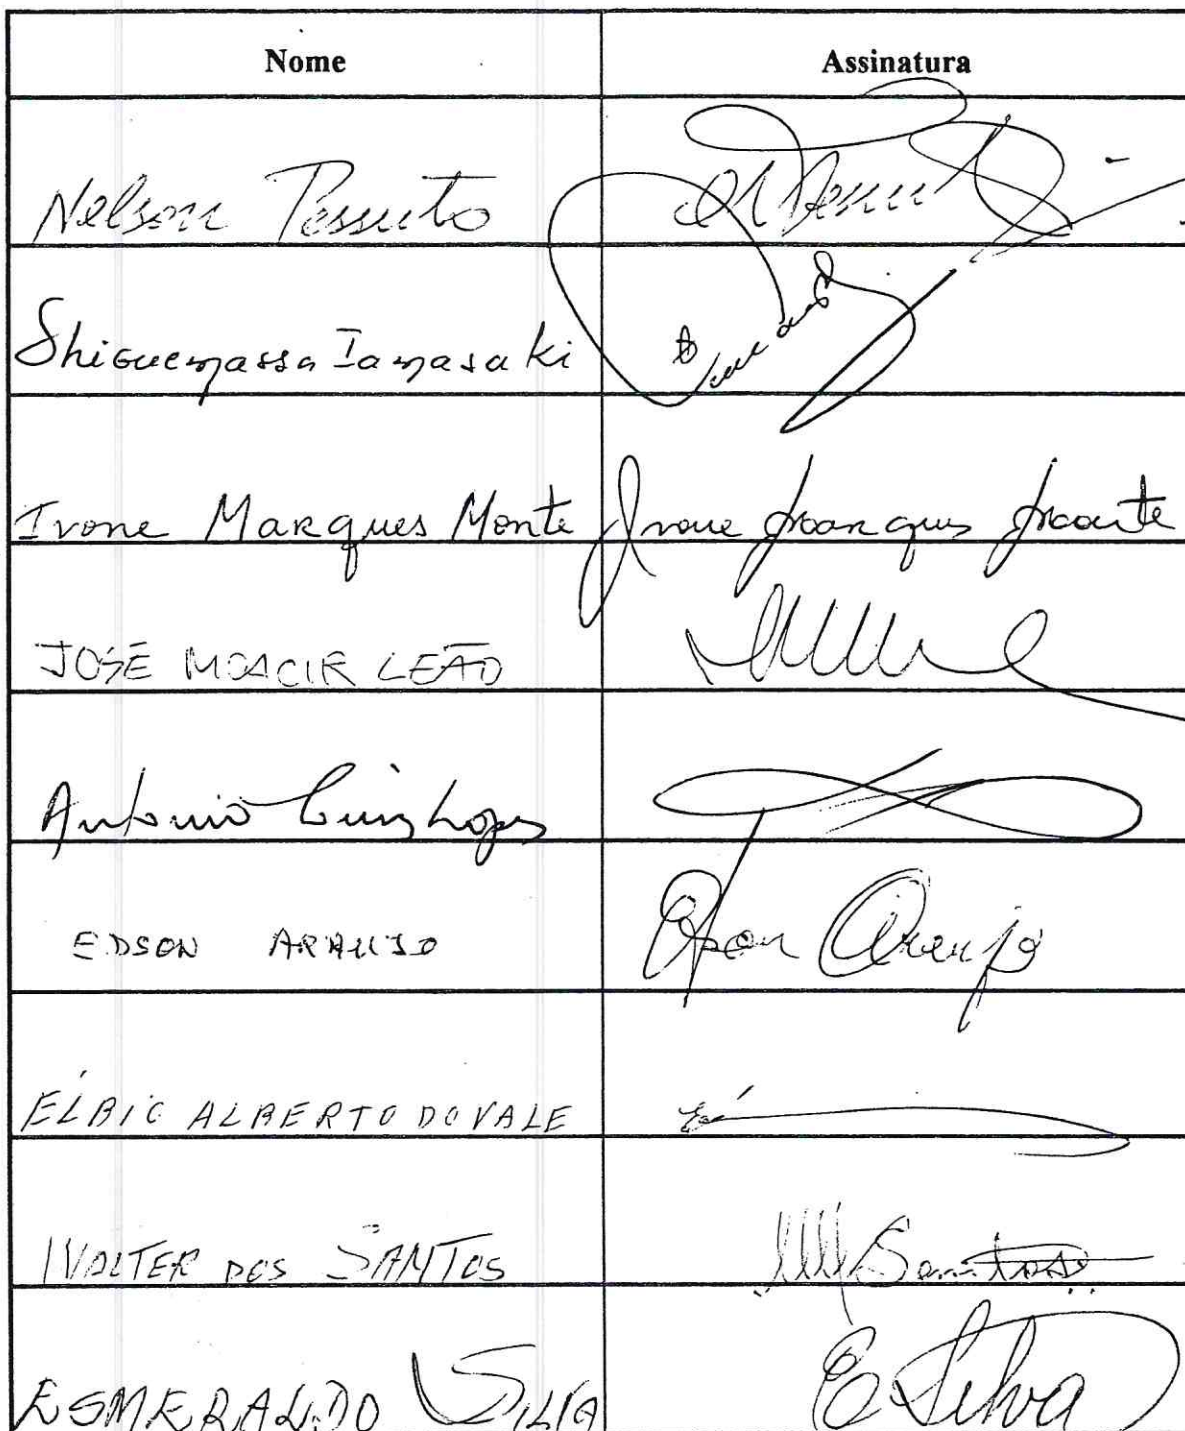 Nome Assinatura
Nelson Pessuto
Shiguemassa Iamasaki
Ivone Marques Monte Ivone Marques Monte
JOSÉ MOACIR LEÃO
Antonio Luiz Lopes
EDSON ARAUJO Edson Araujo
ÉLBIO ALBERTO DO VALE
WALTER DOS SANTOS Santos
ESMERALDO SILVA E Silva